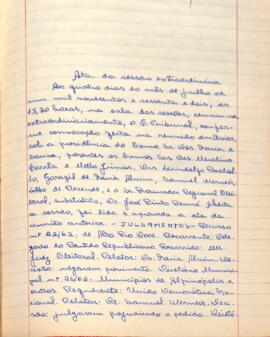 Ata da sessão extraordinária
Aos quatro dias do mês de julho de
um mil novecentos e sessenta e dois, às
15,30 horas, na sala das sessões, reuniu-se
extraordinariamente, o E. Tribunal, confor-
me convocação feita na reunião anterior,
sob a presidência do Exmo Sr. Des. Faria e
Sousa, presentes os Exmos Srs. Des.
e Mello Júnior, Drs. Lourival
de Faria Alvim, Samuel Werneck,
de Rezende, e o Sr. Procurador Regional Elei-
toral, substituto, Dr. José Pinto Renó. Aberta
a sessão, foi lida e aprovada a ata da
reunião anterior. - JULGAMENTOS - Recurso
nº 22/62, de Rio Doce. Recorrente: Dele-
gado do Partido Republicano. Recorrido: MM
Juiz Eleitoral. Relator: Dr. Faria Alvim. De-
cisão: negaram provimento. Diretório Munici-
pal nº 26/62 - Municípios de Alpinópolis e
outros. Requerente: União Democrática Na-
cional. Relator: Dr. Samuel Werneck. Deci-
são: julgaram prejudicado o pedido. Diretó-